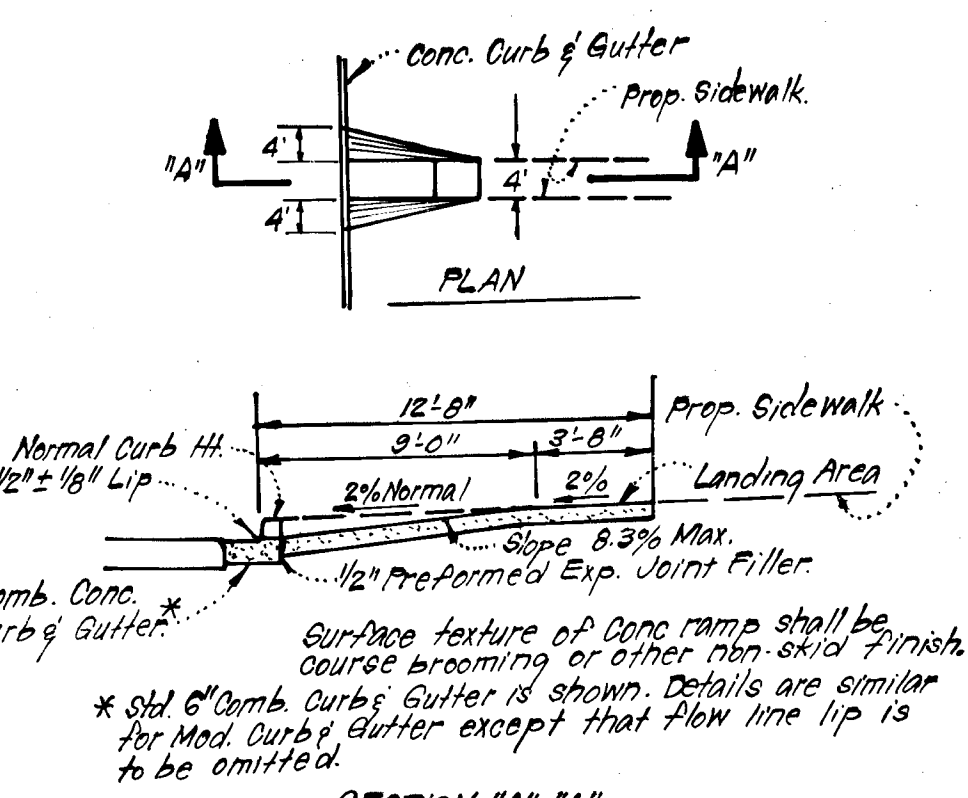 Conc. Curb & Gutter
Prop. Sidewalk.
"A"
4'
4'
4'
"A"
PLAN
12'-8"
Prop. Sidewalk
9'-0"
3'-8"
Normal Curb Ht.
1/2" ± 1/8" Lip
2% Normal
2%
Landing Area
Slope 8.3% Max.
1/2" Preformed Exp. Joint Filler.
Comb. Conc.
Curb & Gutter.*
Surface texture of Conc ramp shall be
course brooming or other non-skid finish.
* Std. 6" Comb. Curb & Gutter is shown. Details are similar
for Mod. Curb & Gutter except that flow line lip is
to be omitted.
SECTION "A"-"A"